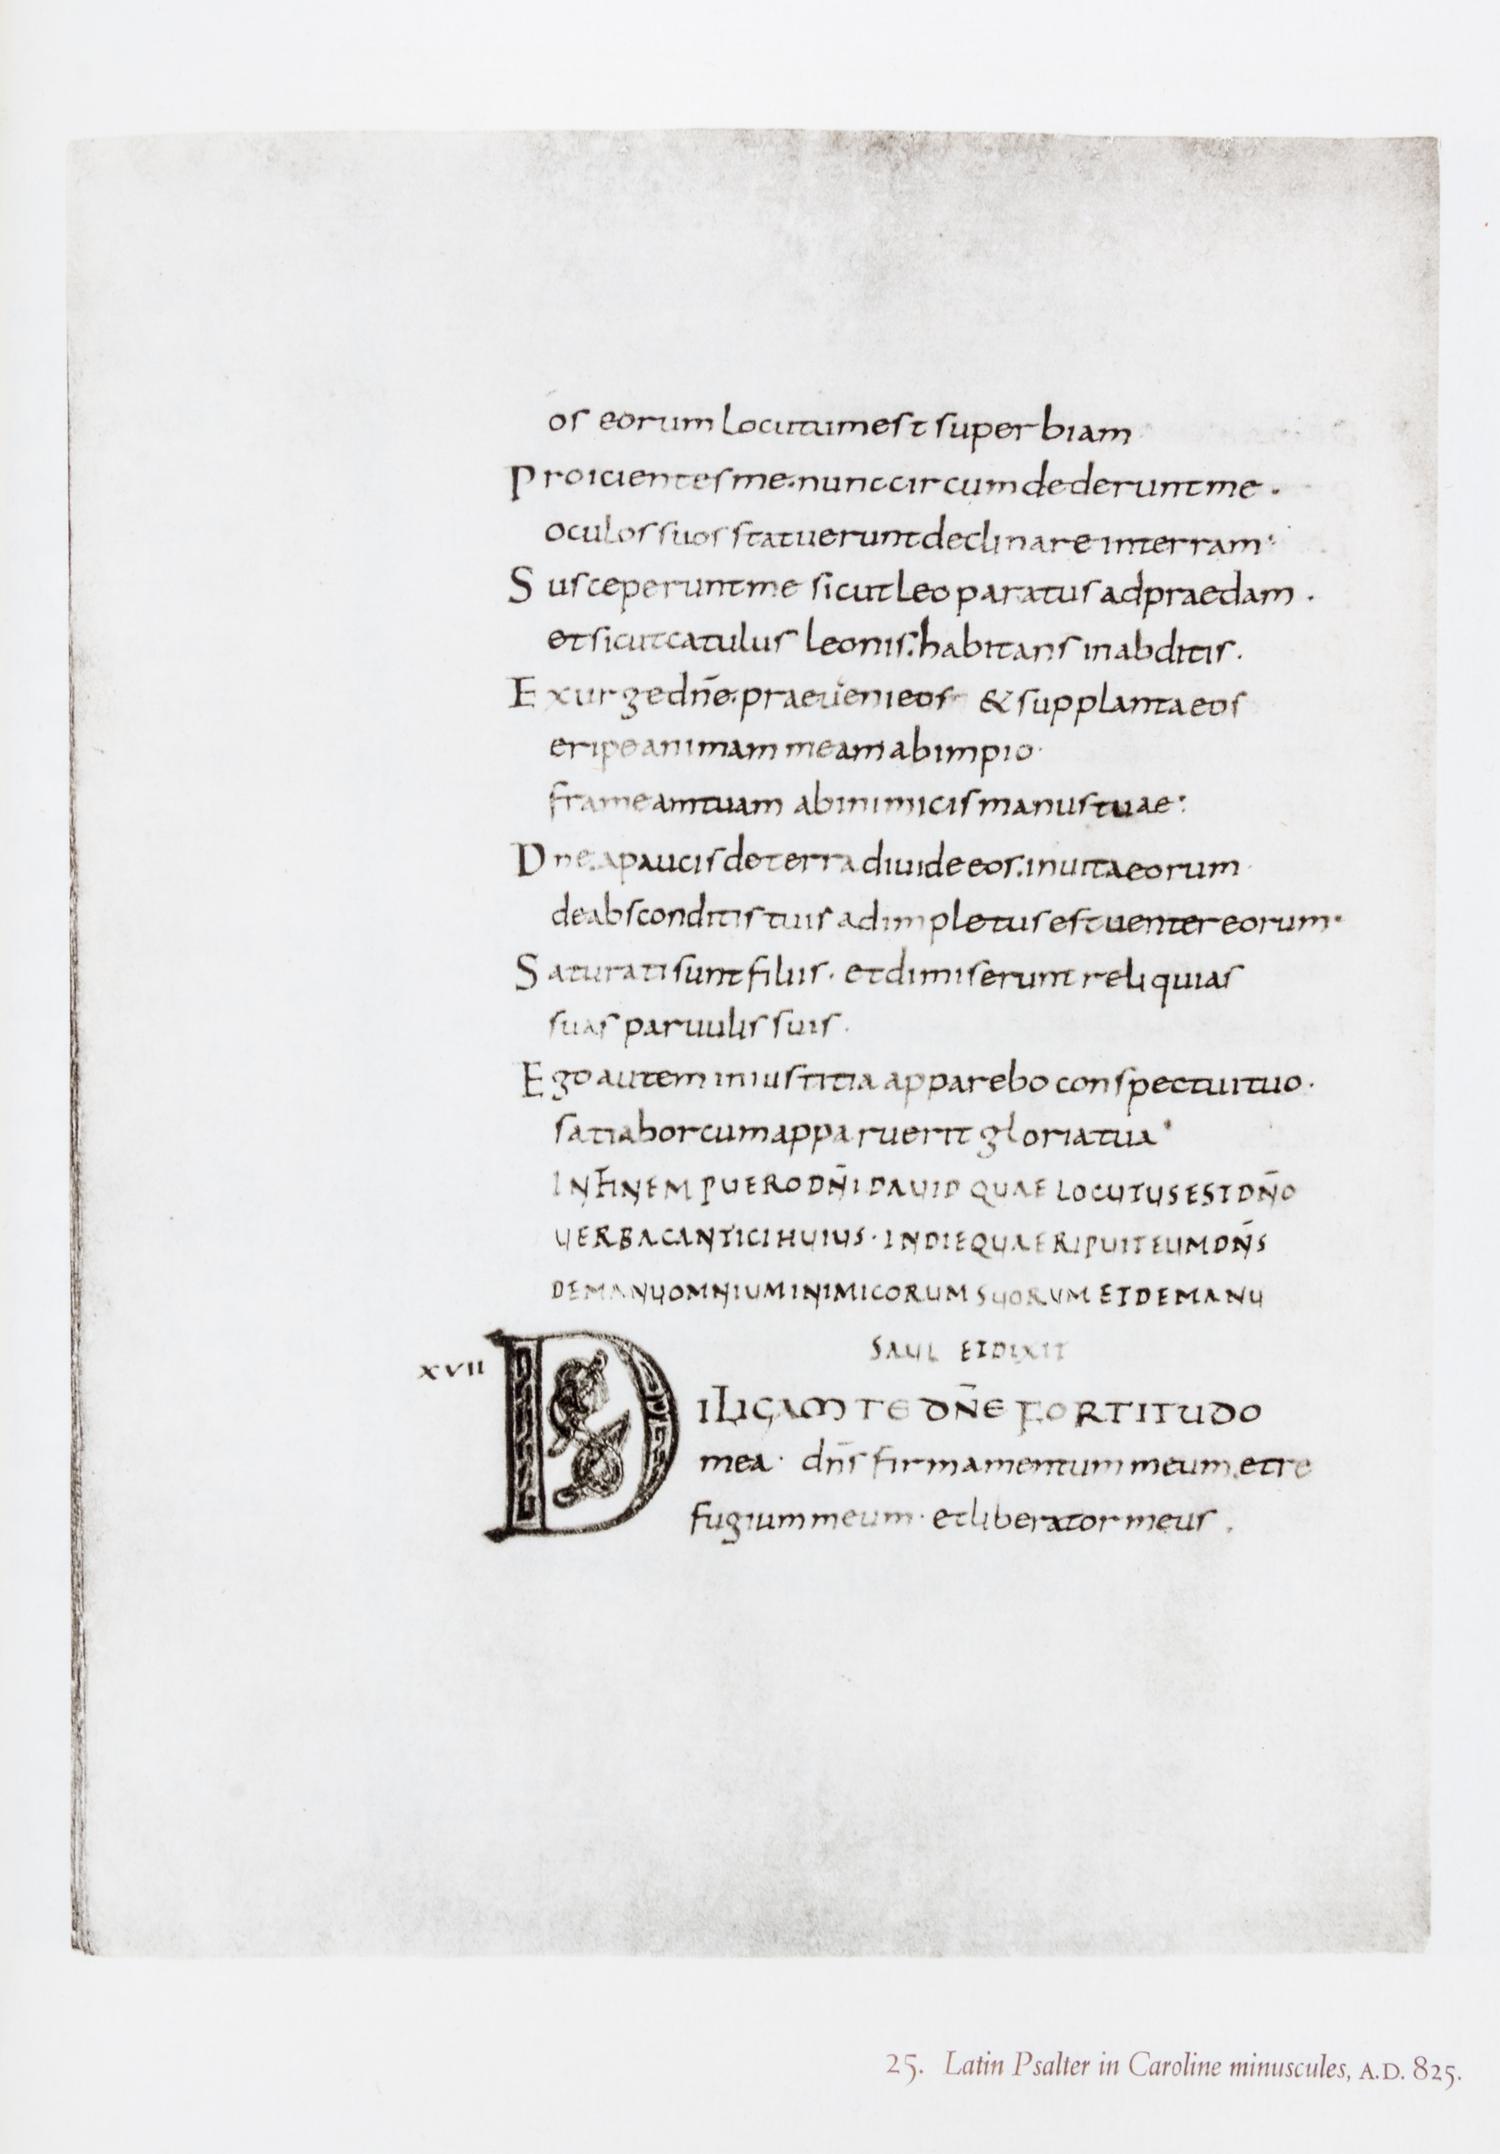 os eorum locutum est superbiam
Proicientes me. nunc circumdederunt me.
oculos suos statuerunt declinare in terram:
Susceperunt me sicut leo paratus ad praedam.
et sicut catulus leonis. habitans in abditis.
Exurge dn̄e. praeveni eos & supplanta eos
eripe animam meam ab impio.
frameam tuam ab inimicis manus tuae:
Dne. a paucis de terra divide eos. in vita eorum
de absconditis tuis adimpletus est venter eorum.
Saturati sunt filiis. et dimiserunt reliquias
suas parvulis suis.
Ego autem in iustitia apparebo conspectui tuo.
satiabor cum apparuerit gloria tua.
IN FINEM PUERO DN̄I DAUID QUAE LOCUTUS EST DN̄O
UERBA CANTICI HUIUS. IN DIE QUA ERIPUIT EUM DN̄S
DE MANU OMNIUM INIMICORUM SUORUM ET DE MANU
SAUL ET DIXIT
XVII DILIGAM TE DN̄E FORTITUDO
mea. dn̄s firmamentum meum. et re
fugium meum. et liberator meus.
25. Latin Psalter in Caroline minuscules, A.D. 825.